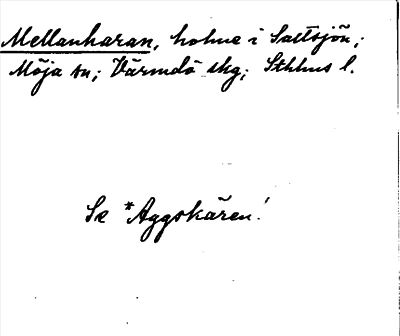 Mellanharan, holme i Saltsjön;
Möja sn; Värmdö skg; Sthlms l.
Se *Aggskären!